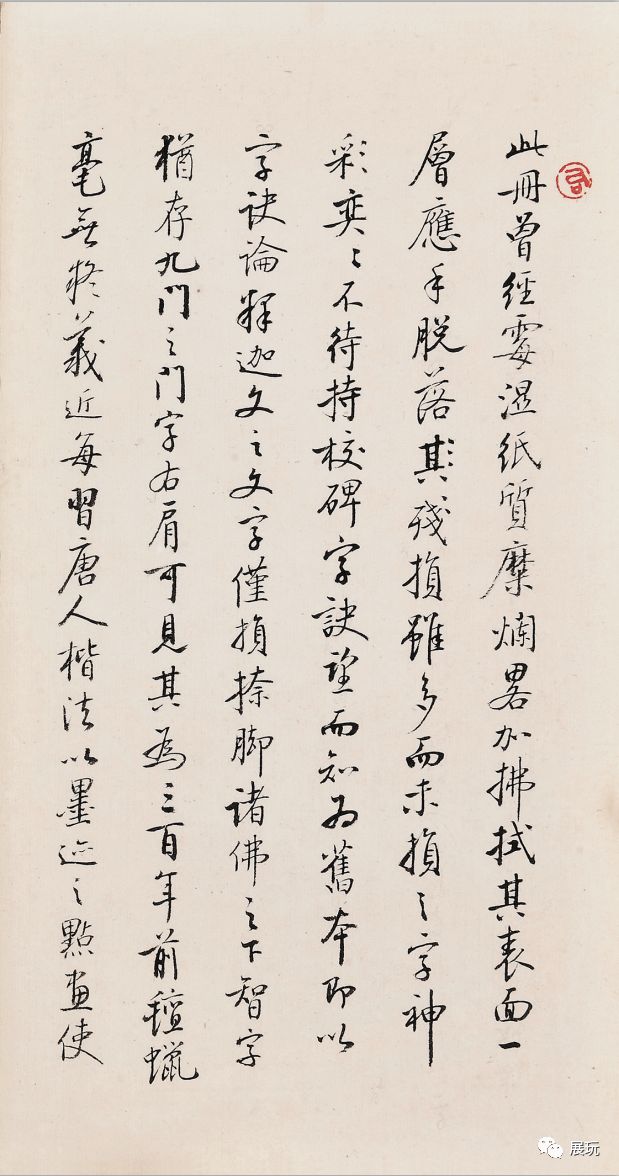 此冊曾經霉濕紙質糜爛畧加拂拭其表面一
層應手脫落其殘損雖多而未損之字神
彩奕〻不待持校碑字訣望而知為舊本即以
字訣論釋迦文之文字僅損捺脚諸佛之下智字
猶存九門之門字右肩可見其為三百年前氊蠟
毫無疑義近每習唐人楷法以墨迹之點畫使
展玩